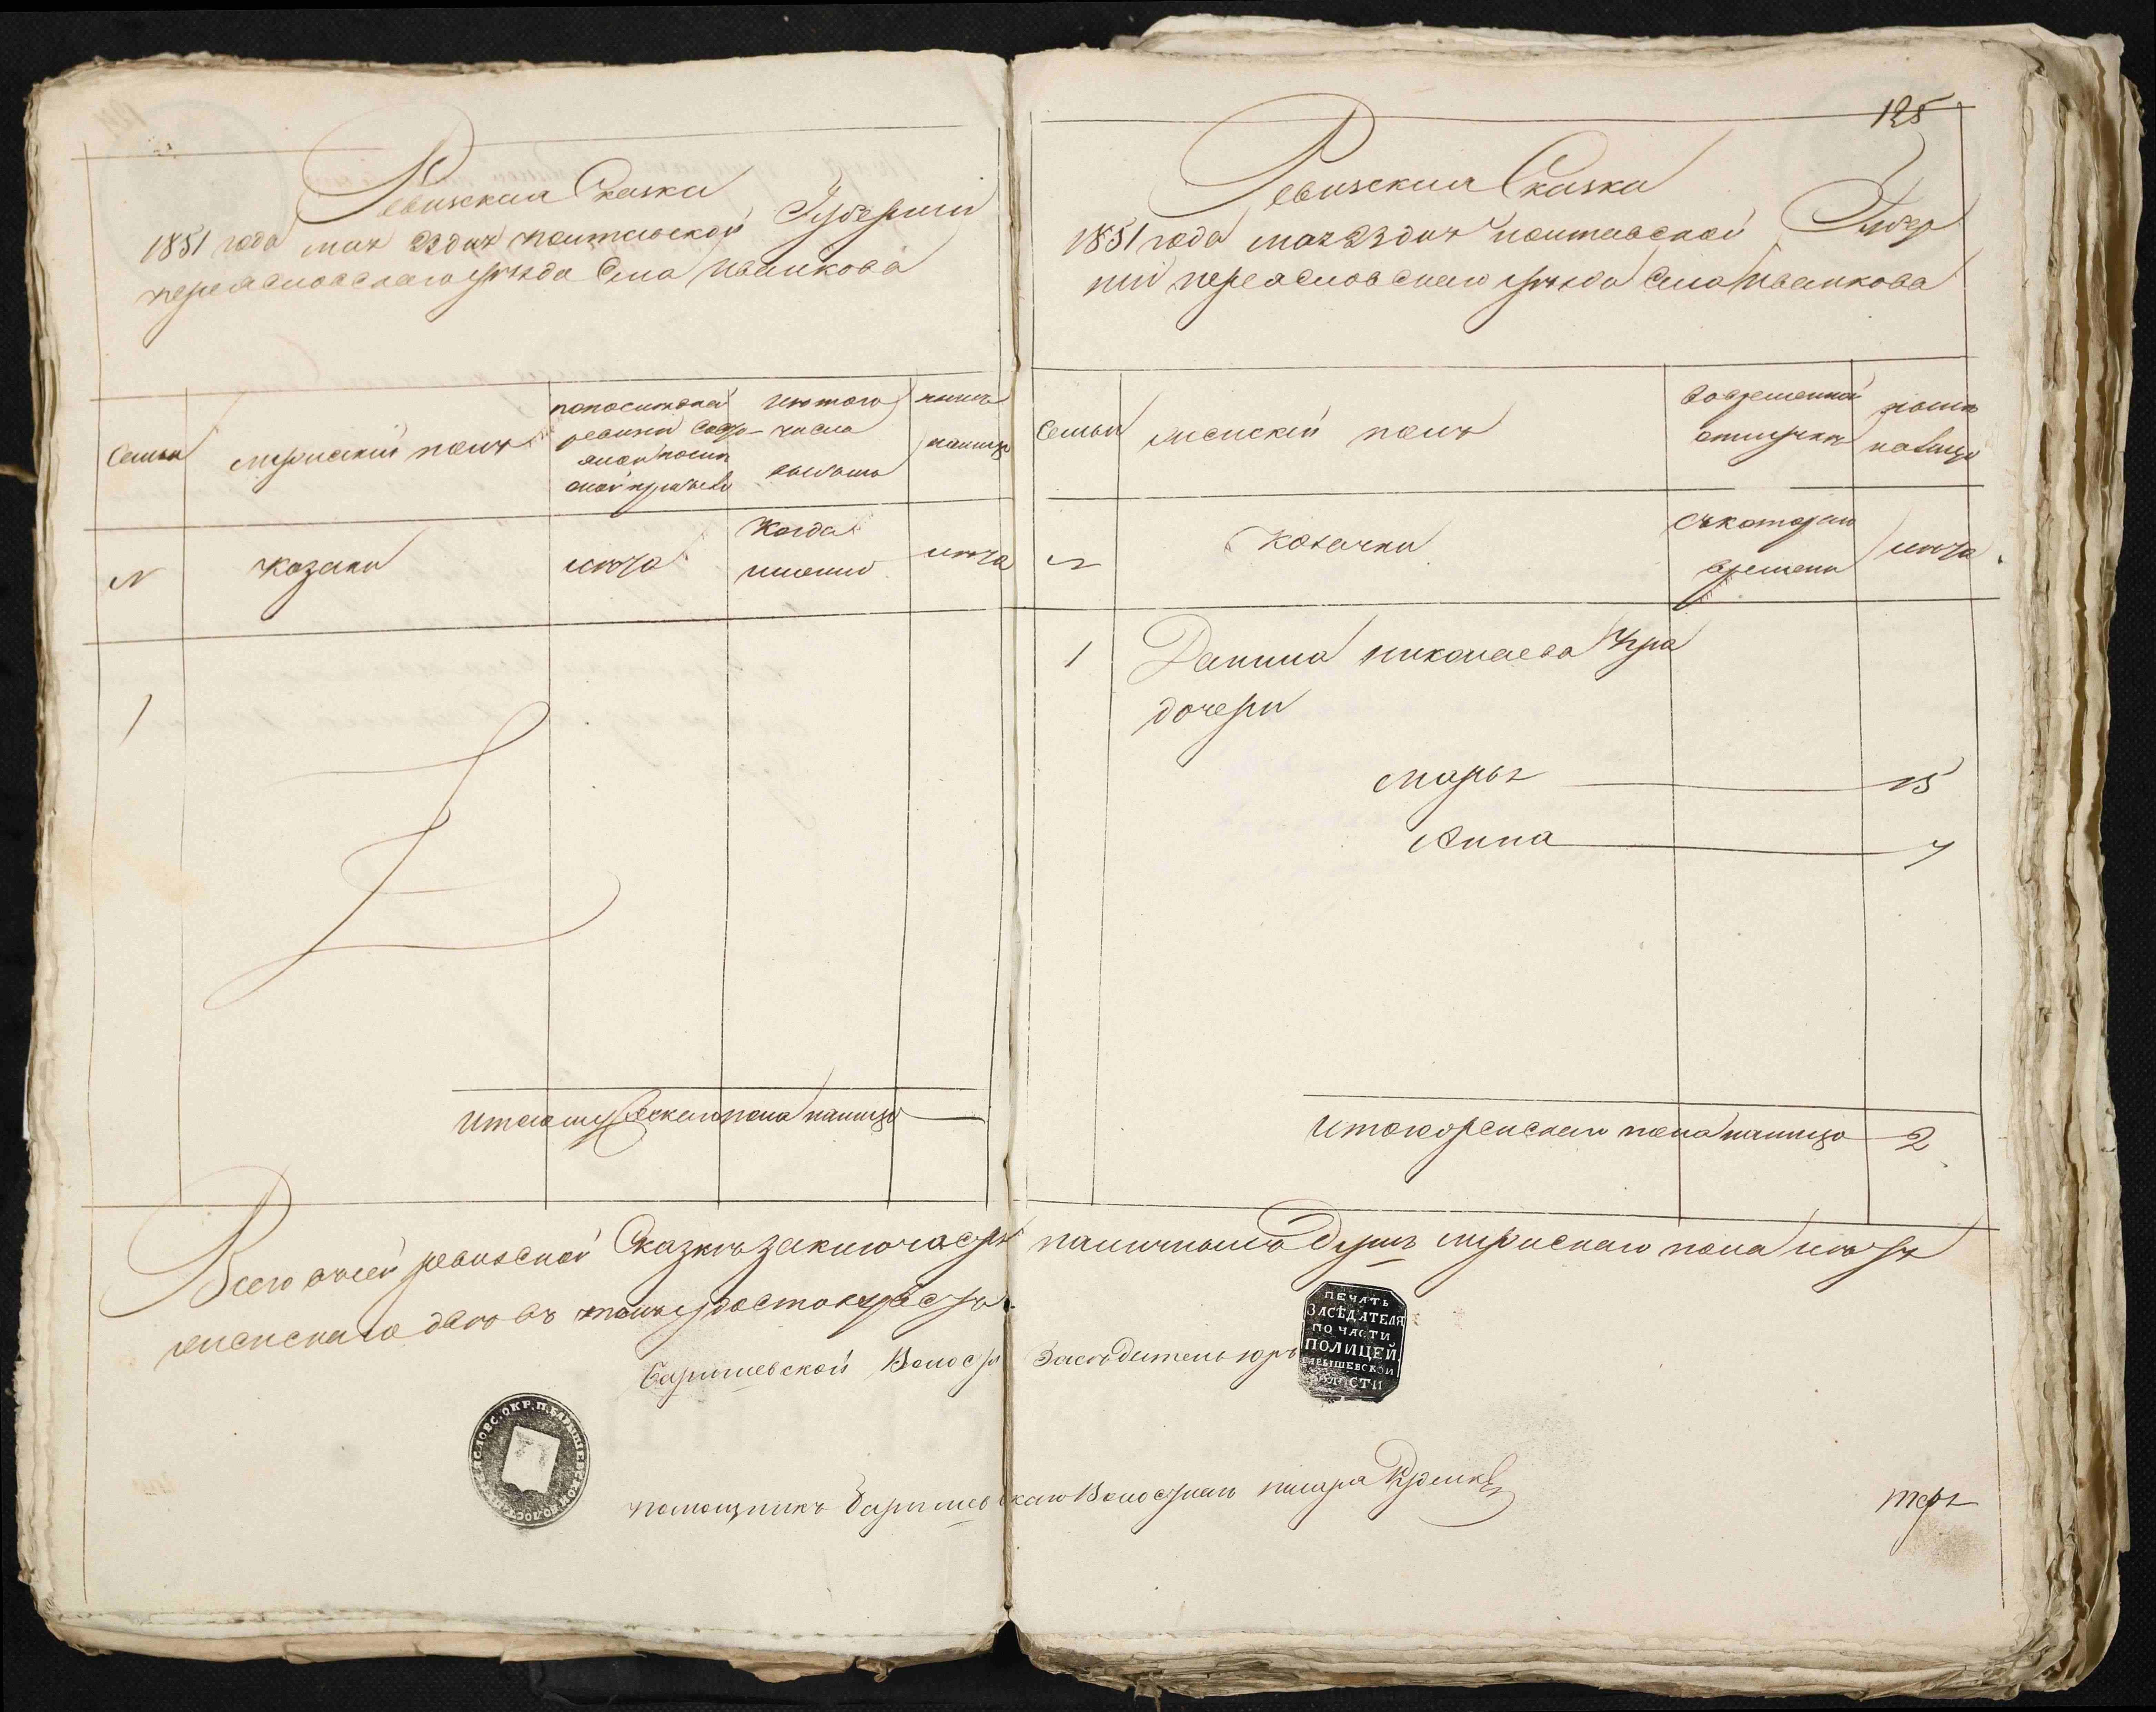 Ревизская Сказка
1851 года мая 23 дня Полтавской Губернии
Переясловскаго уезда Села Иванкова
Семьи
мужеский полъ
По последней ревизии состояло и после оной прибыло
Изъ того числа выбыло
Ныне на лицо
№
Козаки
лета
Когда именно
лета
1
Итого мужескаго пола на лицо
125
Ревизская Сказка
1851 года мая 23 дня Полтавской Губер
нии Переясловскаго уезда Села Иванкова
Семьи
женский полъ
Во временной отлучке
Ныне на лицо
№
Козачки
съ котораго времени
лета
1
Данила Николаева
дочери
Марья 15
Анна 7
Итого женскаго пола на лицо 2
Всего въ сей ревизской Сказке заключается наличныхъ душъ мужескаго пола нетъ
женскаго две въ томъ удостоверяется
Барышевской Волости Заседатель
ПЕЧАТЬ
ЗАСѢДАТЕЛЯ
ПО ЧАСТИ
ПОЛИЦЕЙ.
БАРЫШЕВСКОЙ
ВОЛОСТИ
Помощникъ Барышевскаго Волостнаго писаря